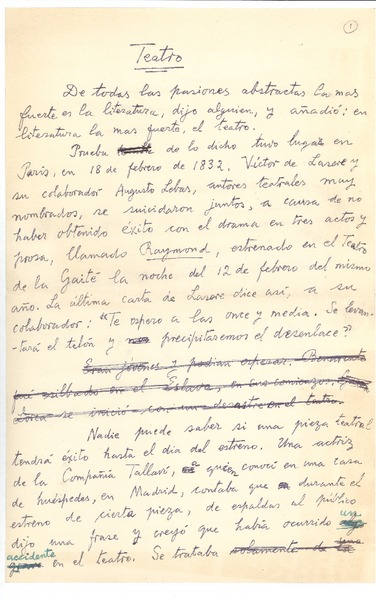 1
Teatro
De todas las pasiones abstractas la mas
fuerte es la literatura, dijo alguien, y añadió: en
literatura la mas fuerte, el teatro.
Prueba de lo dicho tuvo lugar en
París, en 18 de febrero de 1832. Victor de Lasere y
su colaborador Augusto Lebas, autores teatrales muy
nombrados, se suicidaron juntos, a causa de no
haber obtenido éxito con el drama en tres actos y
prosa, llamado Raymond, estrenado en el Teatro
de la Gaité la noche del 12 de febrero del mismo
año. La última carta de Lasere dice así, a su
colaborador: "Te espero a las once y media. Se levan-
tará el telón y precipitaremos el desenlace"
Eran jóvenes y podian esperar. Benavente
fué silbado en el Eslava, en sus comienzos.
se inició con un desastre en el teatro.
Nadie puede saber si una pieza teatral
tendrá éxito hasta el dia del estreno. Una actriz
de la Compañia Tallaví, a quien conocí en una casa
de huéspedes, en Madrid, contaba que durante el
estreno de cierta pieza, de espaldas al público
dijo una frase y creyó que habia ocurrido un
accidente en el teatro. Se trataba solamente de